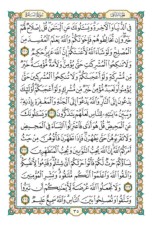 فِي ٱلدُّنْيَا وَٱلْآخِرَةِ وَيَسْـَٔلُونَكَ عَنِ ٱلْيَتَٰمَىٰ قُلْ إِصْلَاحٌ لَّهُمْ
خَيْرٌ وَإِن تُخَالِطُوهُمْ فَإِخْوَٰنُكُمْ وَٱللَّهُ يَعْلَمُ ٱلْمُفْسِدَ مِنَ
ٱلْمُصْلِحِ وَلَوْ شَآءَ ٱللَّهُ لَأَعْنَتَكُمْ إِنَّ ٱللَّهَ عَزِيزٌ حَكِيمٌ
وَلَا تَنكِحُوا۟ ٱلْمُشْرِكَٰتِ حَتَّىٰ يُؤْمِنَّ وَلَأَمَةٌ مُّؤْمِنَةٌ خَيْرٌ
مِّن مُّشْرِكَةٍ وَلَوْ أَعْجَبَتْكُمْ وَلَا تُنكِحُوا۟ ٱلْمُشْرِكِينَ حَتَّىٰ
يُؤْمِنُوا۟ وَلَعَبْدٌ مُّؤْمِنٌ خَيْرٌ مِّن مُّشْرِكٍ وَلَوْ أَعْجَبَكُمْ
أُو۟لَٰٓئِكَ يَدْعُونَ إِلَى ٱلنَّارِ وَٱللَّهُ يَدْعُوٓا۟ إِلَى ٱلْجَنَّةِ وَٱلْمَغْفِرَةِ بِإِذْنِهِ
وَيُبَيِّنُ ءَايَٰتِهِ لِلنَّاسِ لَعَلَّهُمْ يَتَذَكَّرُونَ وَيَسْـَٔلُونَكَ
عَنِ ٱلْمَحِيضِ قُلْ هُوَ أَذًى فَٱعْتَزِلُوا۟ ٱلنِّسَآءَ فِي ٱلْمَحِيضِ
وَلَا تَقْرَبُوهُنَّ حَتَّىٰ يَطْهُرْنَ فَإِذَا تَطَهَّرْنَ فَأْتُوهُنَّ مِنْ حَيْثُ
أَمَرَكُمُ ٱللَّهُ إِنَّ ٱللَّهَ يُحِبُّ ٱلتَّوَّٰبِينَ وَيُحِبُّ ٱلْمُتَطَهِّرِينَ
نِسَآؤُكُمْ حَرْثٌ لَّكُمْ فَأْتُوا۟ حَرْثَكُمْ أَنَّىٰ شِئْتُمْ وَقَدِّمُوا۟ لِأَنفُسِكُمْ
وَٱتَّقُوا۟ ٱللَّهَ وَٱعْلَمُوٓا۟ أَنَّكُم مُّلَٰقُوهُ وَبَشِّرِ ٱلْمُؤْمِنِينَ
وَلَا تَجْعَلُوا۟ ٱللَّهَ عُرْضَةً لِّأَيْمَٰنِكُمْ أَن تَبَرُّوا۟
وَتَتَّقُوا۟ وَتُصْلِحُوا۟ بَيْنَ ٱلنَّاسِ وَٱللَّهُ سَمِيعٌ عَلِيمٌ